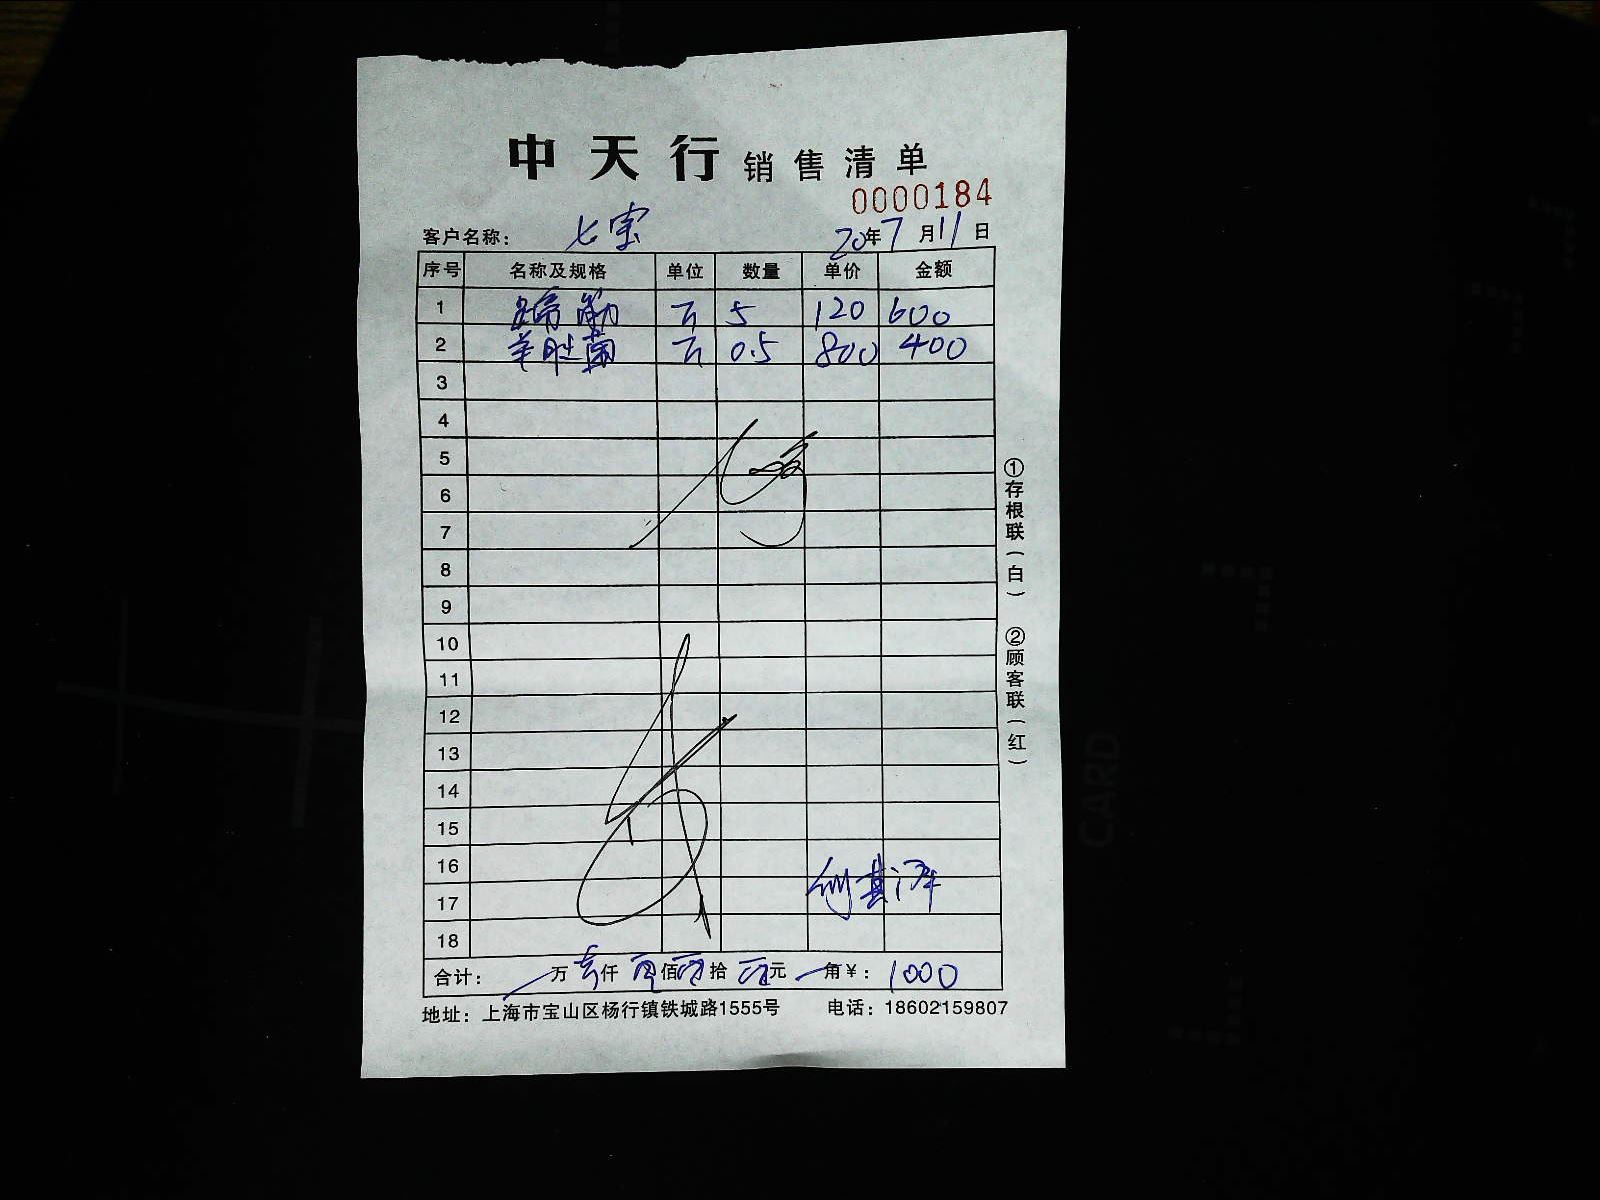 中天行 销售清单
0000184
客户名称： 七宝 20年7月11日
序号 名称及规格 单位 数量 单价 金额
1 蹄筋 斤 5 120 600
2 羊肚菌 斤 0.5 800 400
3
4
5
6
7
8
9
10
11
12
13
14
15
16
17
18
合计： 万 仟 佰 拾 元 角 ¥： 1000
地址：上海市宝山区杨行镇铁城路1555号 电话：18602159807
①存根联（白） ②顾客联（红）
CARD